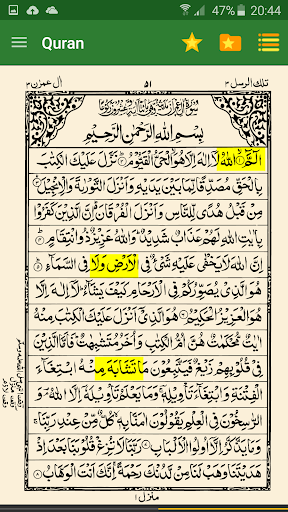 47% 20:44
Quran
تلك الرسل ٣
٥١
اٰل عمرٰن ٣
بِسْمِ اللّٰهِ الرَّحْمٰنِ الرَّحِيْمِ
الٓمّٓ ۙ اللّٰهُ لَاۤ اِلٰهَ اِلَّا هُوَ الْحَىُّ الْقَيُّوْمُ ؕ نَزَّلَ عَلَيْكَ الْكِتٰبَ
بِالْحَقِّ مُصَدِّقًا لِّمَا بَيْنَ يَدَيْهِ وَاَنْزَلَ التَّوْرٰىةَ وَالْاِنْجِيْلَ ۙ
مِنْ قَبْلُ هُدًى لِّلنَّاسِ وَاَنْزَلَ الْفُرْقَانَ ؕ اِنَّ الَّذِيْنَ كَفَرُوْا
بِاٰيٰتِ اللّٰهِ لَهُمْ عَذَابٌ شَدِيْدٌ ؕ وَاللّٰهُ عَزِيْزٌ ذُو انْتِقَامٍ ؕ
اِنَّ اللّٰهَ لَا يَخْفٰى عَلَيْهِ شَىْءٌ فِى الْاَرْضِ وَلَا فِى السَّمَآءِ ؕ
هُوَ الَّذِىْ يُصَوِّرُكُمْ فِى الْاَرْحَامِ كَيْفَ يَشَآءُ ؕ لَاۤ اِلٰهَ اِلَّا
هُوَ الْعَزِيْزُ الْحَكِيْمُ ؕ هُوَ الَّذِىْۤ اَنْزَلَ عَلَيْكَ الْكِتٰبَ مِنْهُ
اٰيٰتٌ مُّحْكَمٰتٌ هُنَّ اُمُّ الْكِتٰبِ وَاُخَرُ مُتَشٰبِهٰتٌ ؕ فَاَمَّا الَّذِيْنَ
فِىْ قُلُوْبِهِمْ زَيْغٌ فَيَتَّبِعُوْنَ مَا تَشَابَهَ مِنْهُ ابْتِغَآءَ
الْفِتْنَةِ وَابْتِغَآءَ تَاْوِيْلِهٖ ۚ وَمَا يَعْلَمُ تَاْوِيْلَهٗۤ اِلَّا اللّٰهُ ۘ وَ
الرّٰسِخُوْنَ فِى الْعِلْمِ يَقُوْلُوْنَ اٰمَنَّا بِهٖ ۙ كُلٌّ مِّنْ عِنْدِ رَبِّنَا ۚ
وَمَا يَذَّكَّرُ اِلَّاۤ اُولُوا الْاَلْبَابِ ؕ رَبَّنَا لَا تُزِغْ قُلُوْبَنَا بَعْدَ اِذْ
هَدَيْتَنَا وَهَبْ لَنَا مِنْ لَّدُنْكَ رَحْمَةً ۚ اِنَّكَ اَنْتَ الْوَهَّابُ
منزل ١